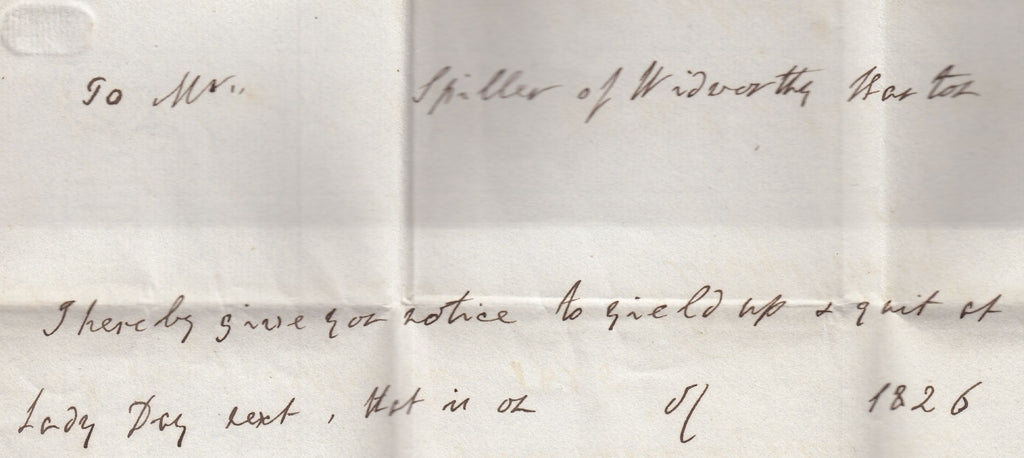 To Mr. Spiller of Widworthy
I hereby give you notice to yield up & quit at
Lady Day next, that is on of 1826